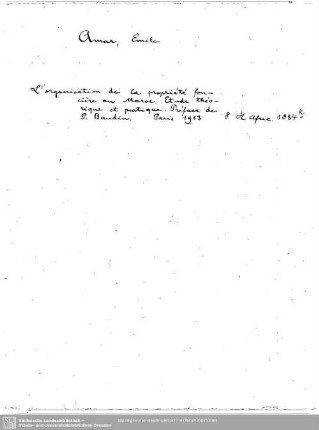 Amar, Emile
L'organisation de la propriété fon-
cière au Maroc. Etude théo-
rique et pratique. Préface de
P. Baudin. Paris 1913 8 H. Afric. 1034
Sächsische Landesbibliothek -
Staats- und Universitätsbibliothek Dresden